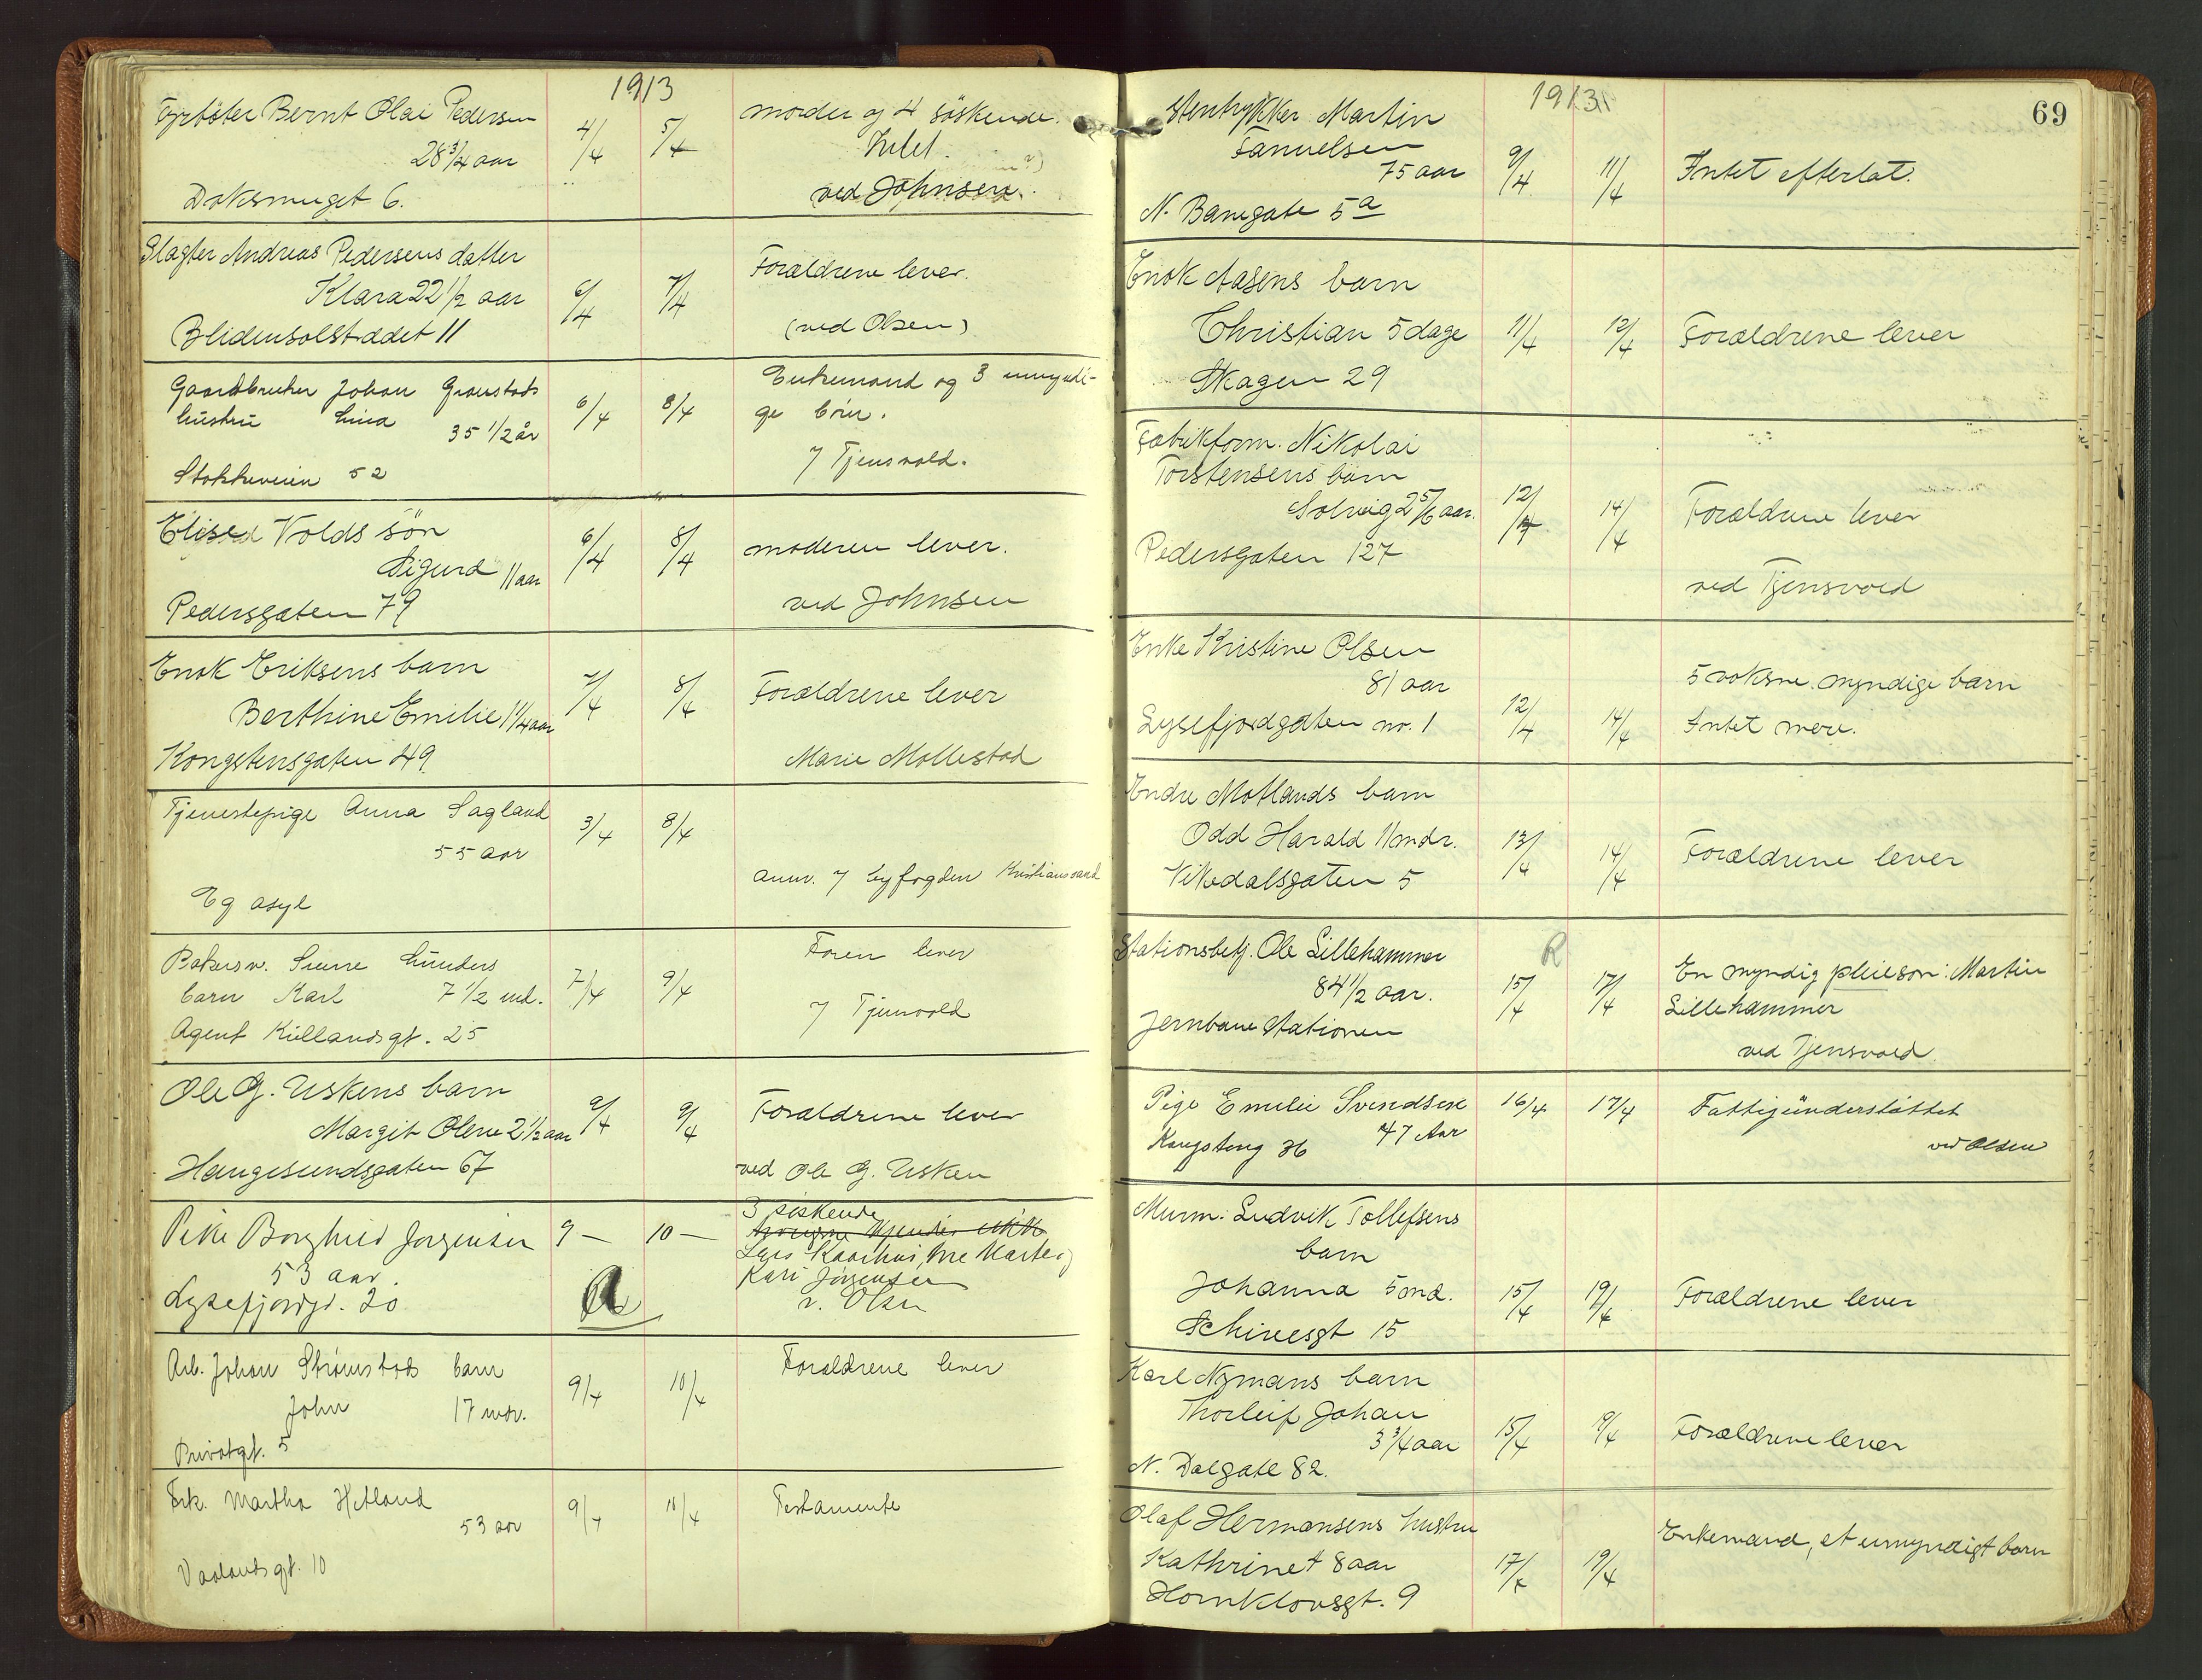 1913
Fyrböter Bernt Olai Pedersen
28 3/4 aar
4/4 5/4
moder og 4 söskende.
Intet.
ved Johnsen.
Doksmuget 6.
Slagter Andreas Pedersens datter
Klara 22 1/2 aar
6/4 7/4
Forældrene lever.
(ved Olsen)
Blidensolstrædet 11
Gaardbruker Johan Graustads
hustru Lina 35 1/2 år
6/4 8/4
Enkemand og 3 umyndi-
ge börn.
v/ Tjensvold.
Stokkeveien 52
Elised Volds sön
Sigurd 11 aar
6/4 8/4
moderen lever.
ved Johnsen
Pedersgaten 79
Enok Eriksens barn
Berthine Emilie 1 1/4 aar
7/4 8/4
Forældrene lever
Marie Mollestad
Kongstensgaten 49.
Tjenestepige Anna Sagland
55 aar
3/4 8/4
anm. v/ byfogden Kristianssand
Eg asyl
Bakersv. Sunne Lunders
barn Karl 7 1/2 md.
7/4 9/4
Foren lever
v/ Tjensvold
Agent Kiellandsgt. 25
Ole G. Uskens barn
Margit Olene 2 1/2 aar
9/4 9/4
Forældrene lever
ved Ole G. Usken
Haugesundsgaten 67
Pike Borghild Jorgensen
53 aar.
9 — 10 —
3 söskende
Lars Kaarhus, Bre Marte og
Kari Jörgensen
v. Olsen
Lysefjordgt. 20
Arb. Johan Strömstads barn
John 17 mdr.
9/4 10/4
Forældrene lever
Privatgt. 5
Frk. Martha Hetland
53 aar
9/4 11/4
Testamente
Vaalandsgt. 10
69
1913
Stentrykker Martin
Samuelsen
75 aar
9/4 11/4
Intet efterlat.
N. Banegate 5 a
Enok Aasens barn
Christian 5 dage
11/4 12/4
Forældrene lever
Skagen 29
Fabrikform. Nikolai
Torstensens barn
Solveig 2 5/6 aar.
12/4 14/4
Forældrene lever
Pedersgaten 127
ved Tjensvold
Enke Kristine Olsen
81 aar
12/4 14/4
5 voksne myndige barn
Intet mere.
Lysefjordgaten nr. 1
Endre Motlands barn
Odd Harald 11 mdr.
13/4 14/4
Forældrene lever
Vikedalsgaten 5
Stationsbetj. Ole Lillehammer
R
84 1/2 aar.
15/4 17/4
En myndig pleiesön: Martin
Lillehammer
Jernbane stationen
ved Tjensvold.
Pige Emilie Svendsen
47 Aar
16/4 17/4
Fattigünderstöttet
ved Olsen
Kongsteng 36
Murm. Ludvik Tollefsens
barn
Johanna 5 md.
15/4 19/4
Forældrene lever
Schivesgt 15
Karl Nymans barn
Thorleif Johan
3 3/4 aar
15/4 9/4
Forældrene lever
N. Dalgate 82.
Olaf Hermansens hustru
Kathrine 48 aar
17/4 19/4
Enkemand, et umyndigt barn
Hornklovsgt. 9